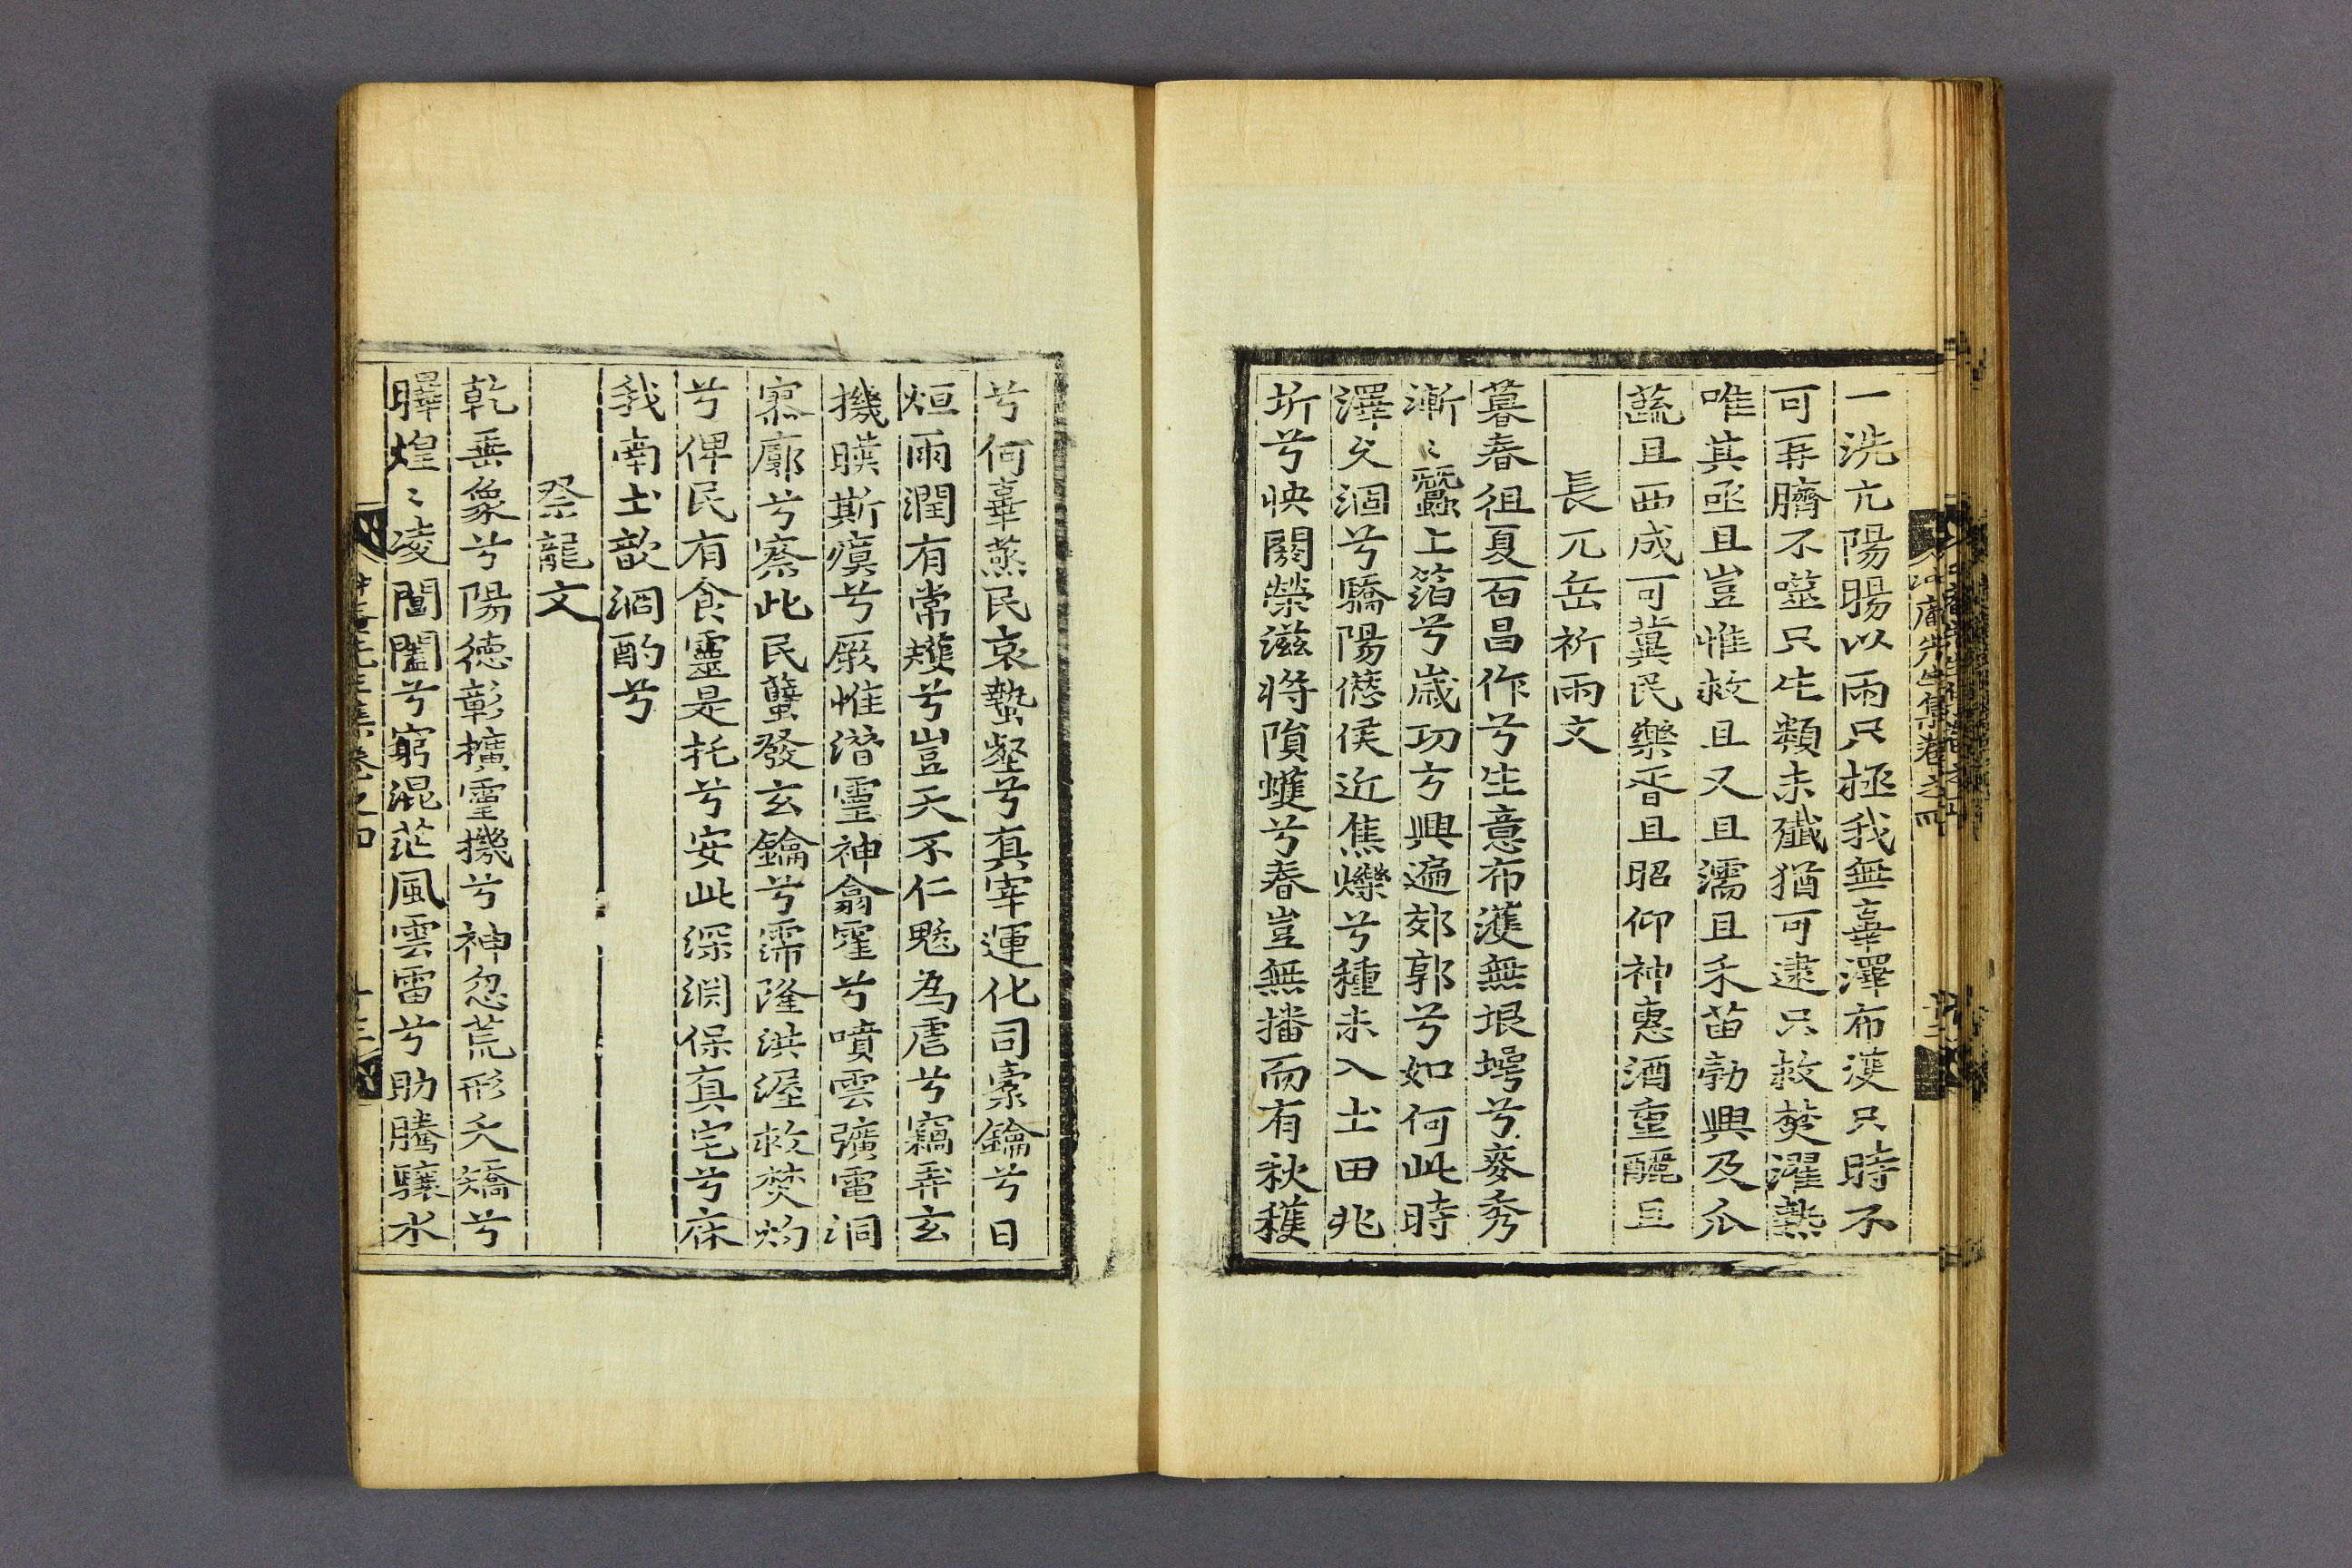 一洗亢陽暘以雨只拯我無辜澤布濩只時不
可再臍不噬只生類未殱猶可逮只救焚濯熱
唯其亟且豈惟救且又且濡且禾苗勃興及瓜
蔬且西成可冀民樂胥且昭仰神惠酒重釃且
長兀岳祈雨文
暮春徂夏百昌作兮生意布濩無垠堮兮麥秀
漸〻蠶上箔兮歲功方興遍郊郭兮如何此時
澤久涸兮驕陽愆侯近焦爍兮種未入土田兆
圻兮怏闕榮滋將隕蠖兮春豈無播而有秋穫
兮何辜烝民哀蟄壑兮真宰運化司橐鑰兮日
烜雨潤有常矱兮豈天不仁魃爲虐兮竊弄玄
機暵斯瘼兮厥惟潛靈神翕霍兮噴雲彍電洞
寥廓兮察此民蠥發玄鑰兮霈隆洪渥救焚灼
兮俾民有食靈是托兮安此深淵保真宅兮庥
我南土歆泂酌兮
祭龍文
乾垂象兮陽德彰擴靈機兮神忽荒形夭矯兮
曄煌〻凌閶闔兮窮混茫風雲雷兮助騰驤水